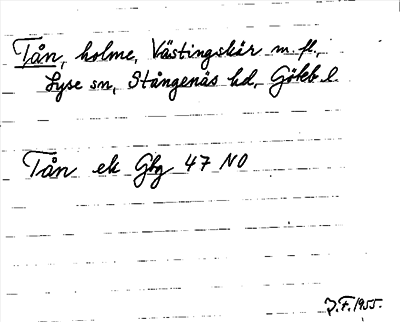 Tån, holme, Västingskär m. fl.,
Lyse sn, Stångenäs hd, Gökb l.
Tån ek Gbg 47 NO
J.F. 1955.